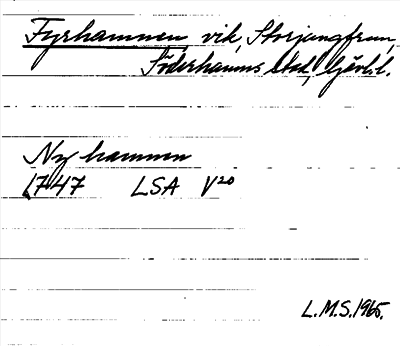 Fyrhamnen, vik, Storjungfrun,
Söderhamns stad, Gävl.l.
Nyhamnen
1747 LSA V20
L.M.S. 1965.